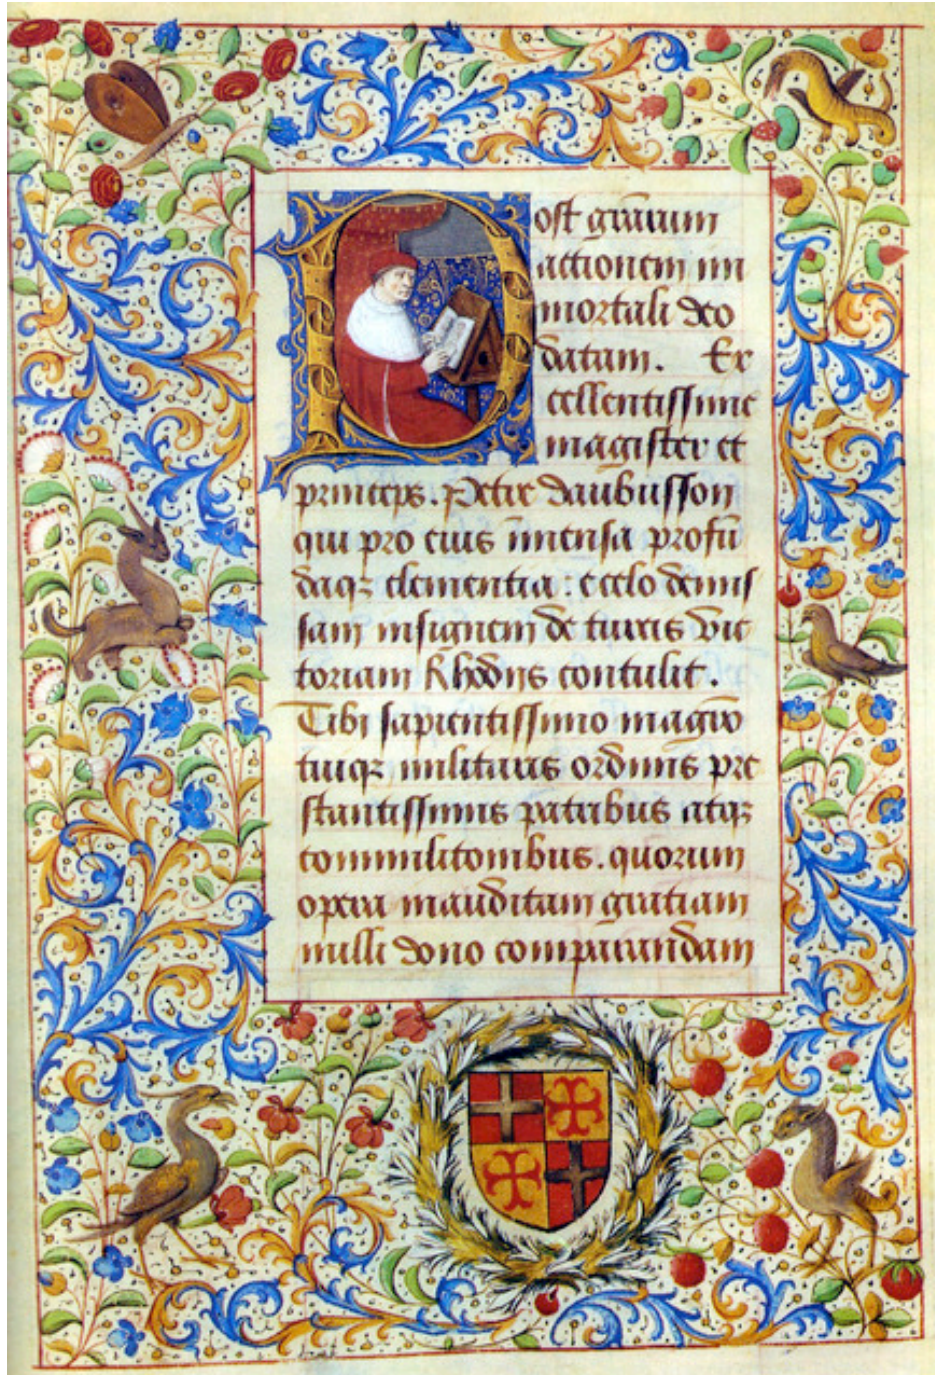 Post graciarum
actionem im
mortali deo
datam. Ex
cellentissime
magister et
princeps. Petre daubusson
qui pro eius īmensa profū
daqꝫ clementia: e celo demis
sam insignem de turcis vic
toriam Rhodijs contulit.
Tibi sapientissimo magr̄o
tuiqꝫ militaris ordinis pre
stantissimis patribus atqꝫ
commilitonibus. quorum
opera inauditam gratiam
nulli dono comparandam